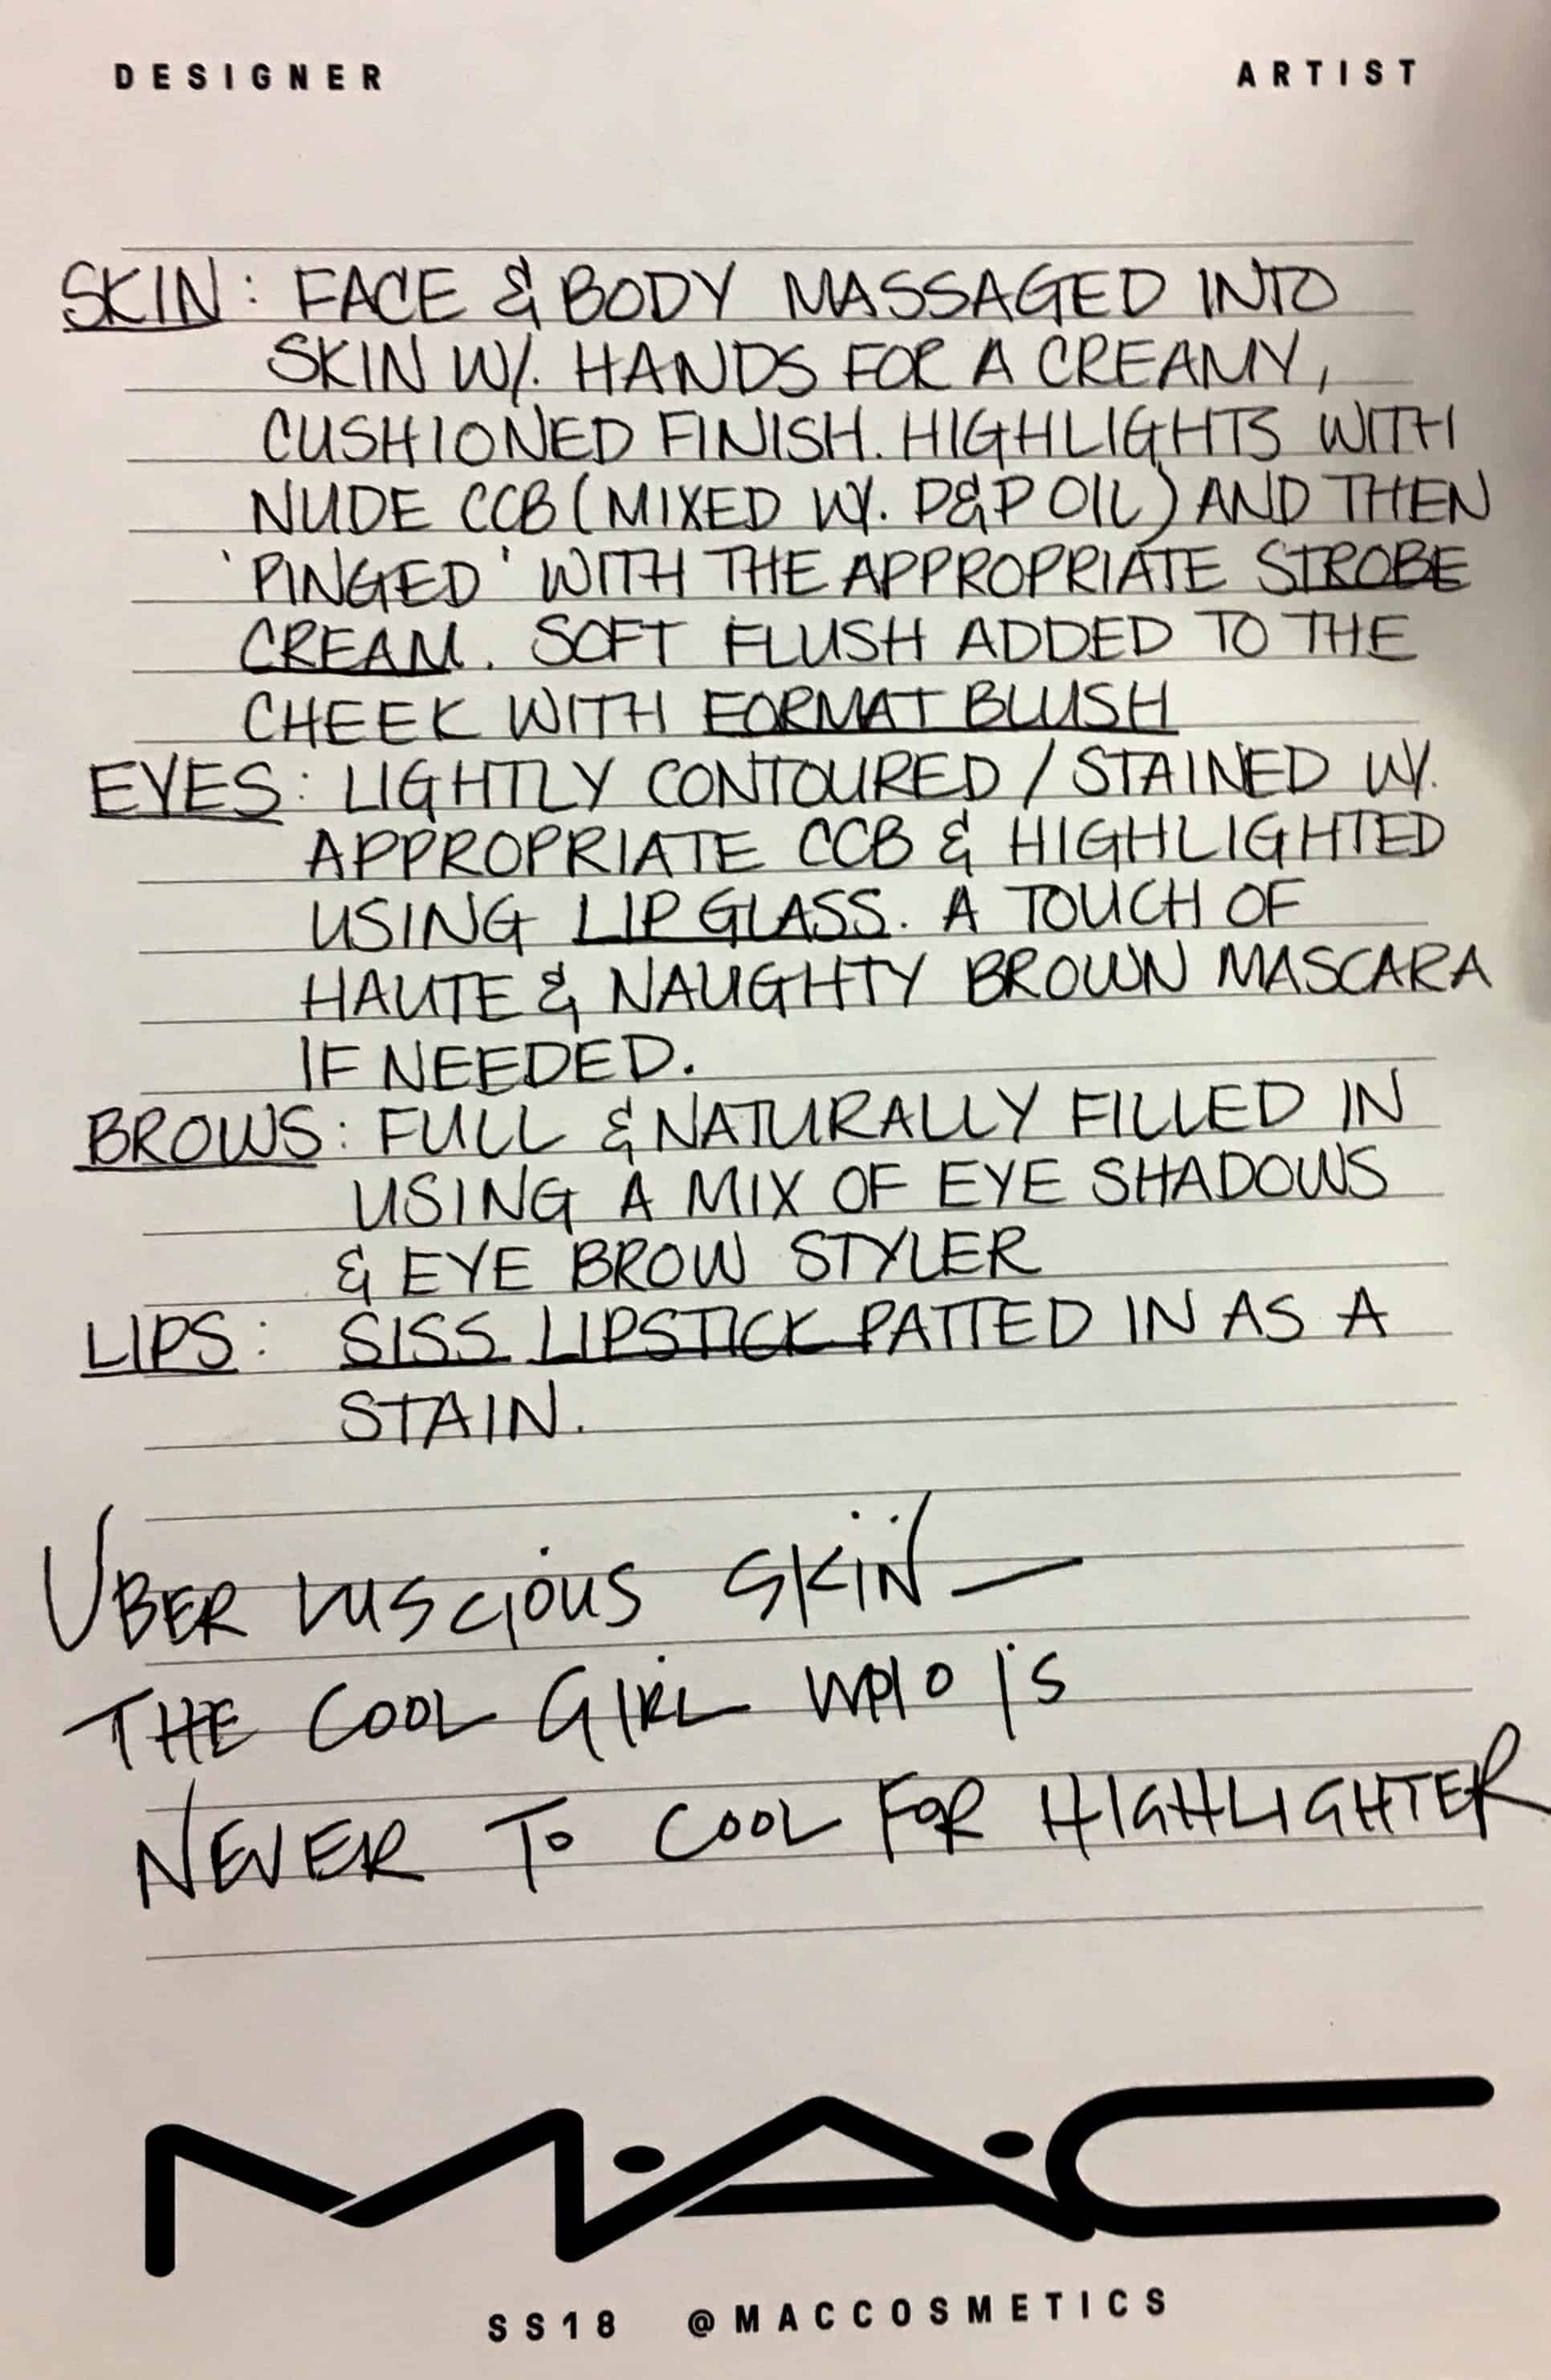 DESIGNER ARTIST
SKIN: FACE & BODY MASSAGED INTO
SKIN W/. HANDS FOR A CREAMY,
CUSHIONED FINISH. HIGHLIGHTS WITH
NUDE CCB (MIXED W/. P&P OIL) AND THEN
'PINGED' WITH THE APPROPRIATE STROBE
CREAM. SOFT FLUSH ADDED TO THE
CHEEK WITH FORMAT BLUSH
EYES: LIGHTLY CONTOURED / STAINED W/.
APPROPRIATE CCB & HIGHLIGHTED
USING LIP GLASS. A TOUCH OF
HAUTE & NAUGHTY BROWN MASCARA
IF NEEDED.
BROWS: FULL & NATURALLY FILLED IN
USING A MIX OF EYE SHADOWS
& EYE BROW STYLER
LIPS: SISS LIPSTICK PATTED IN AS A
STAIN.
UBER LUSCIOUS SKIN —
THE COOL GIRL WHO IS
NEVER TO COOL FOR HIGHLIGHTER
M·A·C
SS18 @MACCOSMETICS